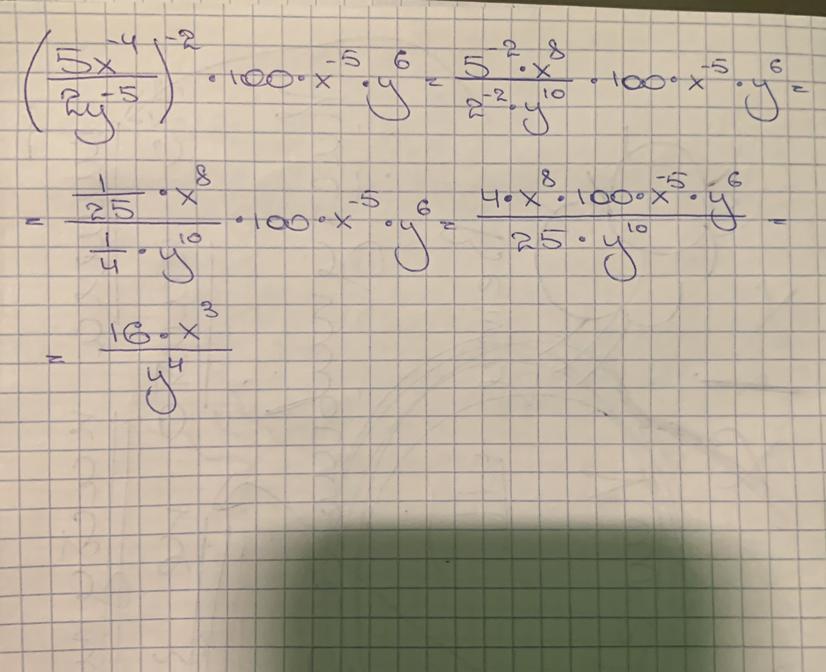 (5x⁻⁴/2y⁻⁵)⁻² · 100 · x⁻⁵ · y⁶ = (5⁻² · x⁸)/(2⁻² · y¹⁰) · 100 · x⁻⁵ · y⁶ =
= (1/25 · x⁸)/(1/4 · y¹⁰) · 100 · x⁻⁵ · y⁶ = (4 · x⁸ · 100 · x⁻⁵ · y⁶)/(25 · y¹⁰) =
= (16 · x³)/y⁴